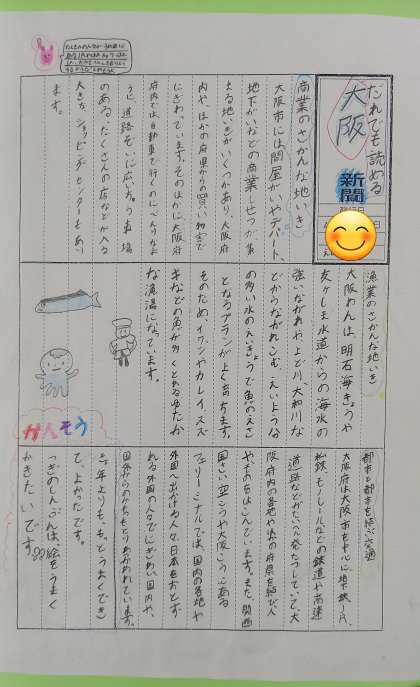 だれでも読める
大阪
新聞
商業のさかんな地いき
大阪市には問屋がいやデパート、
地下がいなどの商業しせつが集
まる地いきがいくつかあり、大阪府
内や、ほかの府県からの買い物客で
にぎわっています。そのほかに大阪府
府内では自動車で行くのにべんりなよ
うに道路ぞいに広いちゅう車場
のある、たくさんの店などが入る
大きな、ショッピングセンターもあり
ます。
漁業のさかんな地いき
大阪わんは、明石海きょうや
友ヶしま水道からの海水の
強いながれや、よど川、大和川な
どからながれこむ、えいような
の多い水のえいきょうで魚のえさ
となるプランがよく育ちます。
そのため、イワシやカレイ、スズ
キなどの魚が多くとれるゆたか
な漁場になっています。
かんそう
都市と都市を結ぶ交通
大阪府は大阪市を中心に、地下鉄、JR、
私鉄、モノレールなどの鉄道や高速
道路などがたいへん発たつしていて、大
阪府内の各地や他の府県を結び人
やものをはこんでいます。また、関西
国さい空こうや大阪こうにある
フェリーターミナルでは、国内の各地や
外国へ出かける人々、日本をおとず
れる外国の人々でにぎわい国内や、
国外からのかもつもとりあつかわれています。
三年よりも、もっとうまくでき
て、よかったです。
つぎのしんぶんは、絵をうまく
かきたいです。